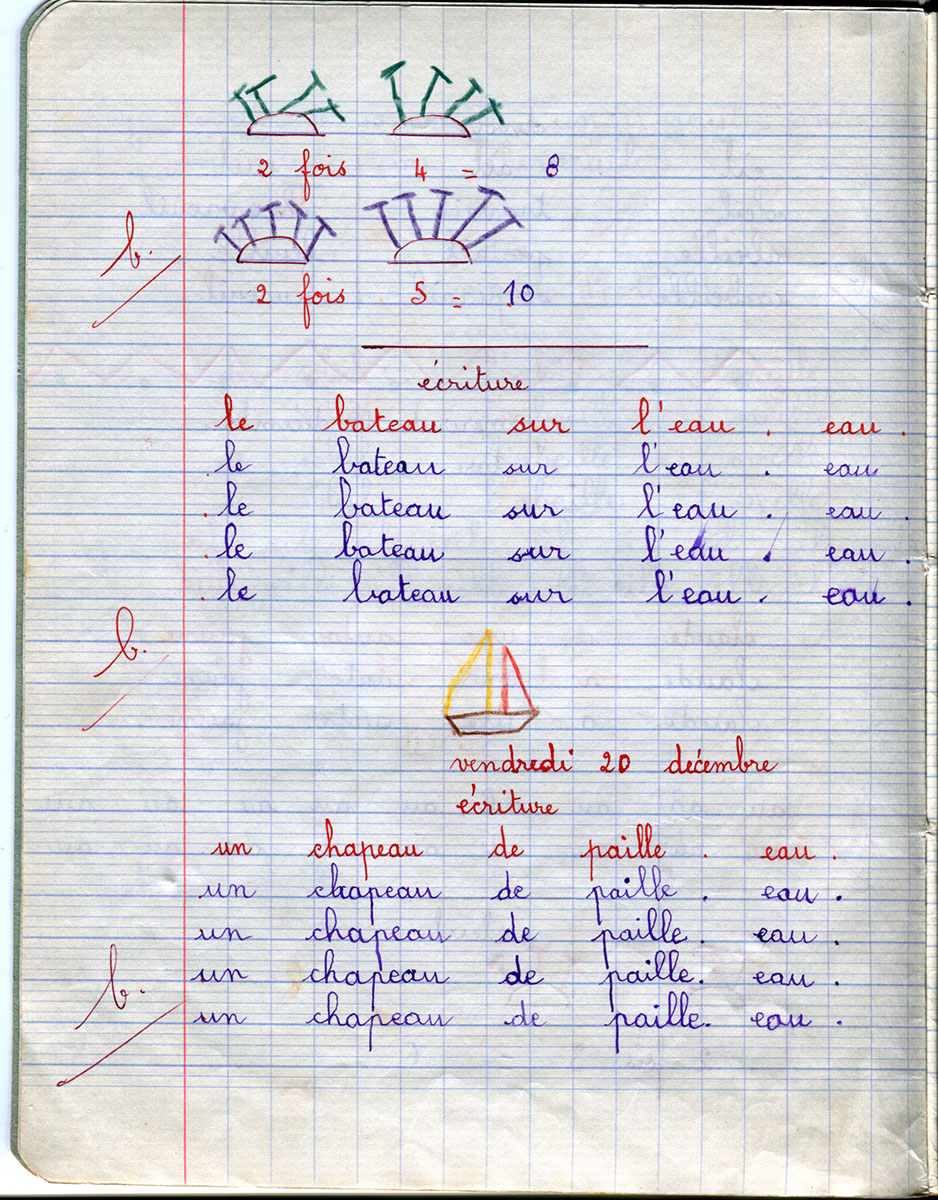 2 fois 4 = 8
b.
2 fois 5 = 10
écriture
le bateau sur l'eau . eau .
le bateau sur l'eau . eau
le bateau sur l'eau . eau .
le bateau sur l'eau . eau .
le bateau sur l'eau . eau .
b.
vendredi 20 décembre
écriture
un chapeau de paille . eau .
un chapeau de paille . eau .
un chapeau de paille . eau .
un chapeau de paille . eau .
b.
un chapeau de paille . eau .